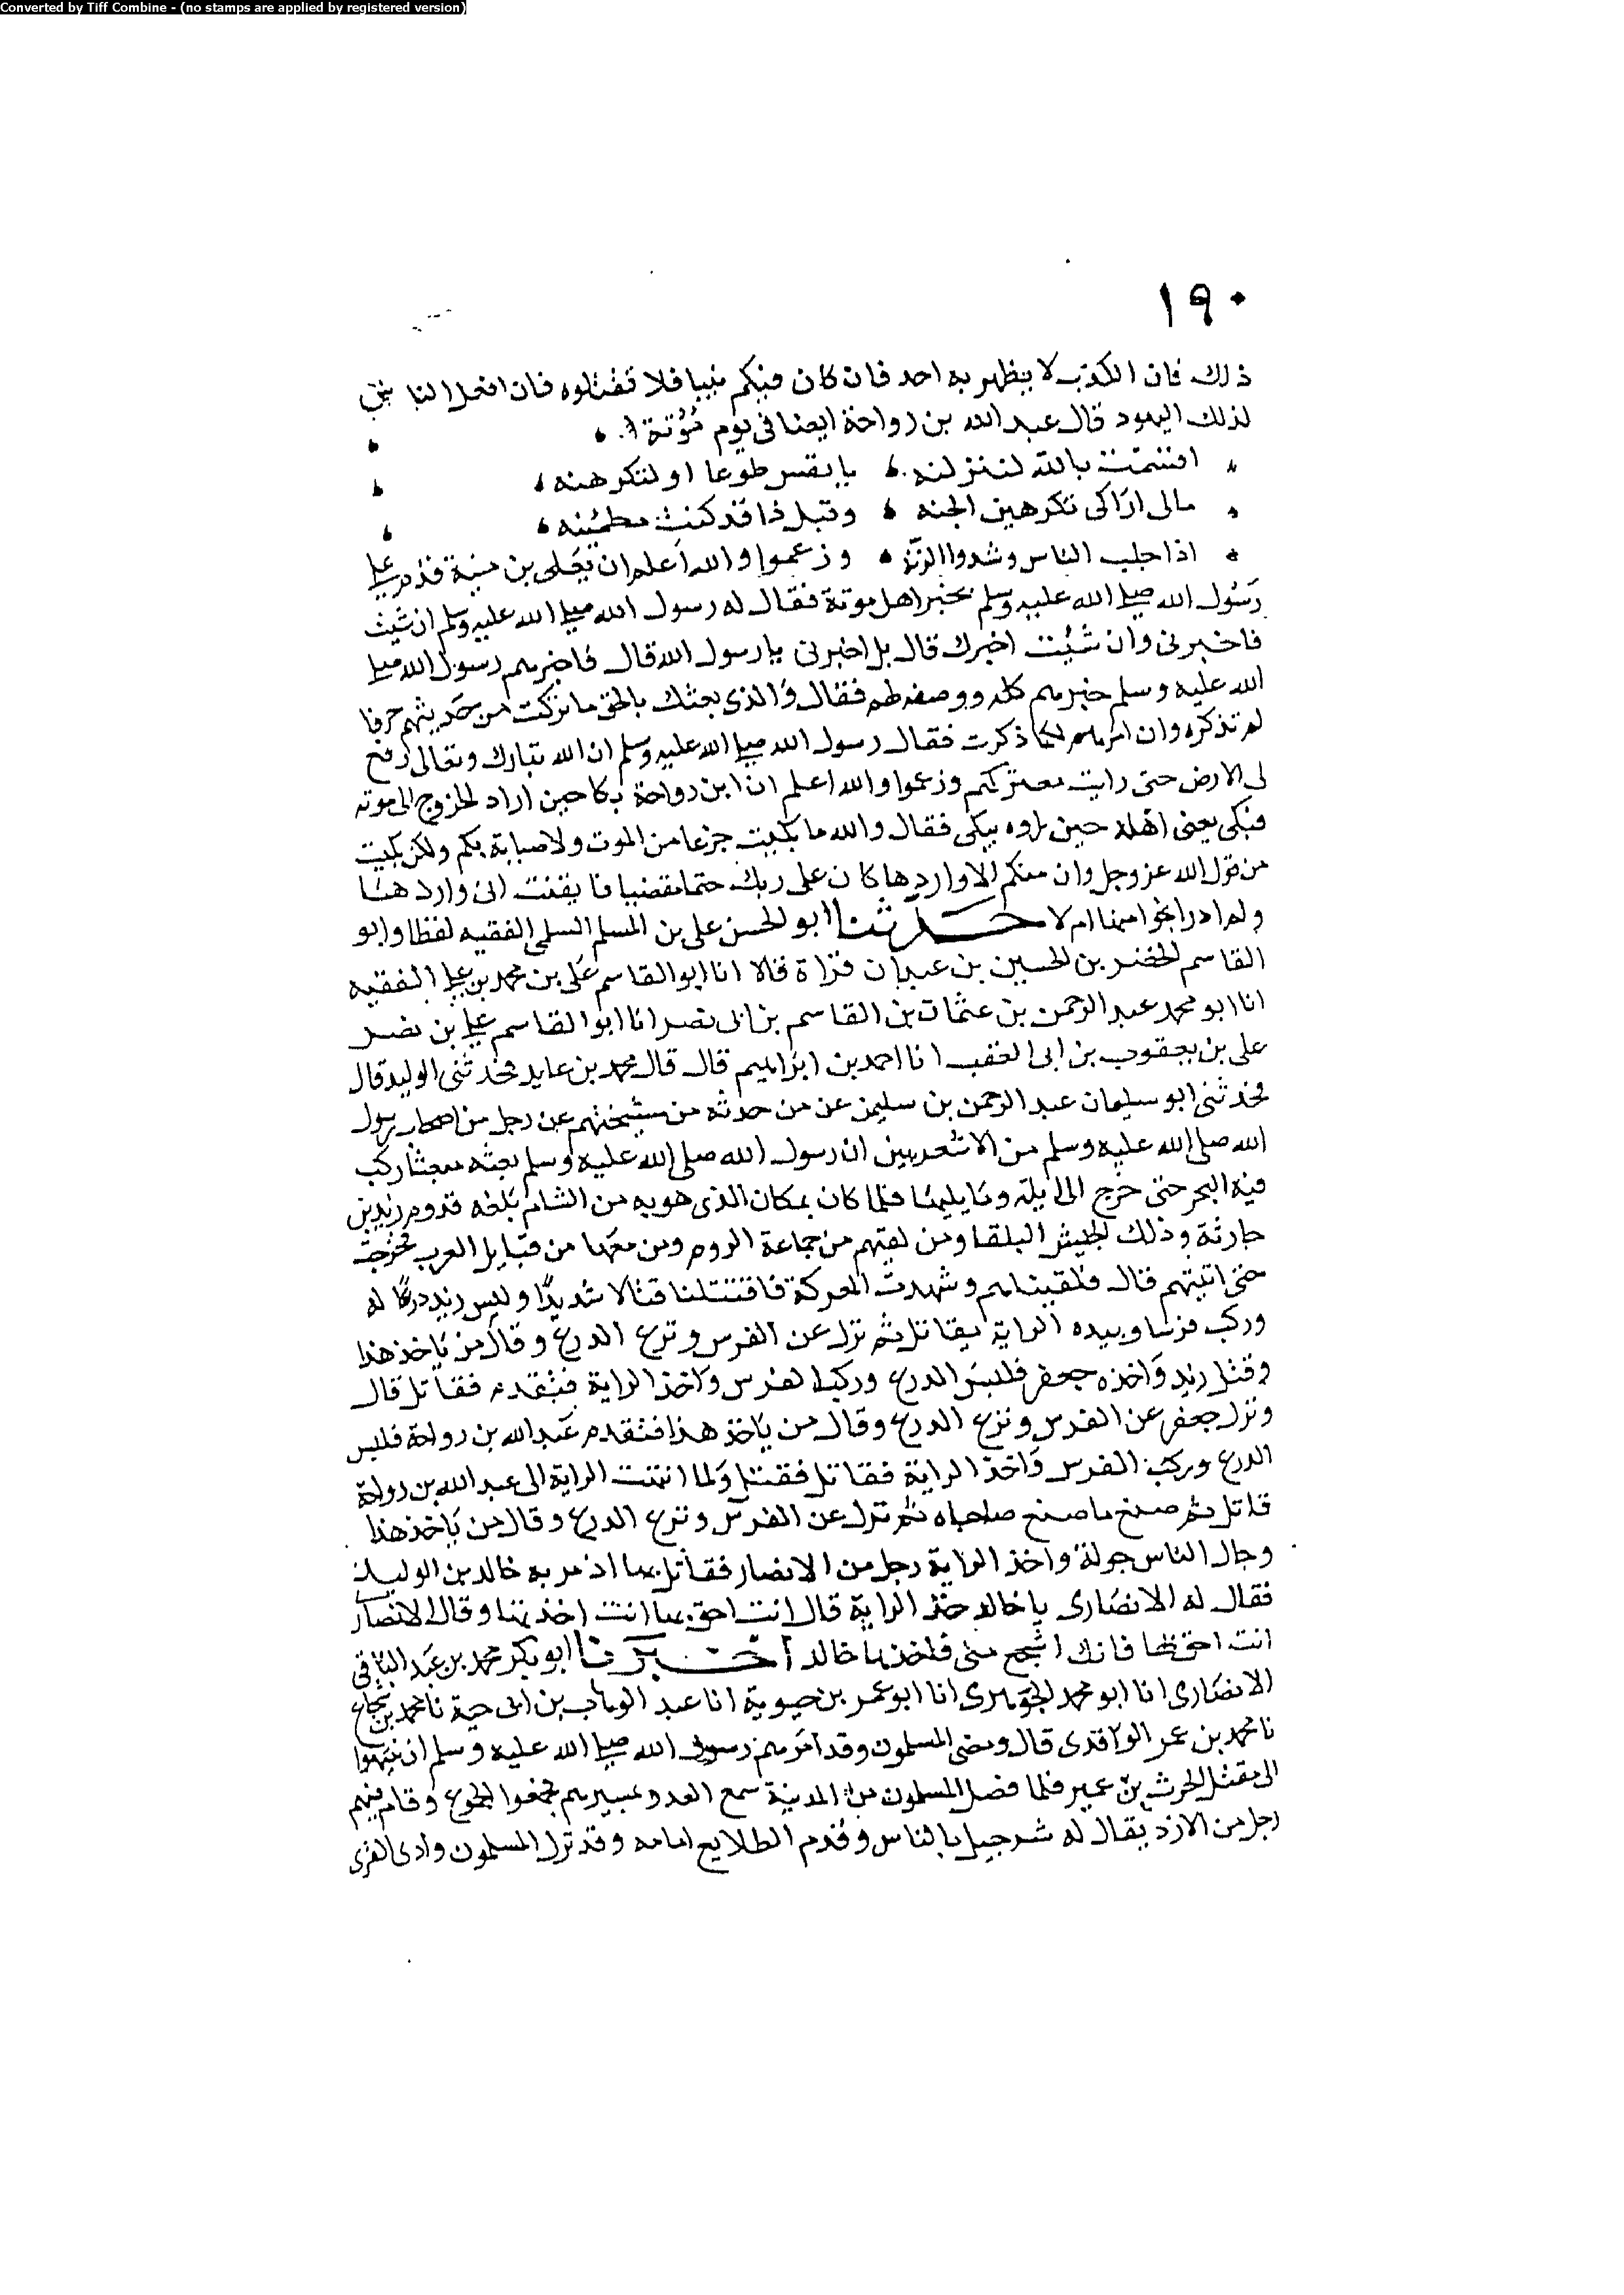 Converted by Tiff Combine - (no stamps are applied by registered version)
١٩٠
ذلك فان الكذب لا يظهر به احد فان كان فيكم نبيا فلا تقتلوه فان
لذلك اليهود قال عبد الله بن رواحة ايضا في يوم مؤتة
اقسمت بالله لتنزلنه يا نفس طوعا او لتكرهنه
مالى اراكى تكرهين الجنه وقبل ذا قد كنت مطمئنه
اذا جلب الناس وشدوا الرنه وزعموا والله اعلم ان يعلى بن منية قدم على
رسول الله صلى الله عليه وسلم بخبر اهل موتة فقال له رسول الله صلى الله عليه وسلم ان شئت
فاخبرنى وان شئت اخبرك قال بل اخبرنى يا رسول الله قال فاخبرهم رسول الله صلى
الله عليه وسلم خبرهم كله ووصفه لهم فقال والذى بعثك بالحق ما تركت من حديثهم حرفا
لم تذكره وان امرهم لكما ذكرت فقال رسول الله صلى الله عليه وسلم ان الله تبارك وتعالى رفع
لى الارض حتى رايت معتركهم وزعموا والله اعلم ان ابن رواحة بكا حين اراد الخروج الى موته
فبكى يعنى اهله حين راوه يبكى فقال والله ما بكيت جزعا من الموت ولا صبابة بكم ولكن بكيت
من قول الله عز وجل وان منكم الا واردها كان على ربك حتما مقضيا فايقنت انى واردها
ولم ادر انجو امنها ام لا حدثنا ابو الحسن على بن المسلم السلمى الفقيه لفظا وابو
القاسم الخضر بن الحسين بن عبدان قراة قالا انا ابو القاسم على بن محمد بن على الفقيه
انا ابو محمد عبد الرحمن بن عثمان بن القاسم بن ابى نصر انا ابو القاسم على بن نصر
على بن يعقوب بن ابى العقب انا احمد بن ابراهيم قال قال محمد بن عايد فحدثنى الوليد قال
فحدثنى ابو سليمان عبد الرحمن بن سليمن عن من حدثه من مشيختهم عن رجل من اصحاب رسول
الله صلى الله عليه وسلم من الاشعريين ان رسول الله صلى الله عليه وسلم بعثه مبعثا ركب
فيه البحر حتى خرج الى ايلة وما يليها فلما كان بمكان الذى هو به من الشام بلغه قدوم زيد بن
حارثة وذلك الجيش البلقا ومن لقيهم من جماعة الروم ومن معها من قبايل العرب فخرجت
حتى اتيتهم قال فلقيناهم وشهدت المعركة فاقتتلنا قتالا شديدًا ولبس زيد درعًا له
وركب فرسا وبيده الراية يقاتل ثم نزل عن الفرس ونزع الدرع وقال من ياخذ هذا
وقتل زيد واخذه جعفر فلبس الدرع وركب الفرس واخذ الراية فتقدم فقاتل قال
ونزل جعفر عن الفرس ونزع الدرع وقال من ياخذ هذا فتقدم عبد الله بن رواحة فلبس
الدرع وركب الفرس واخذ الراية فقاتل فقتل ولما انتهت الراية الى عبد الله بن رواحة
قاتل ثم صنع ما صنع صاحباه ثم نزل عن الفرس ونزع الدرع وقال من ياخذ هذا
وجال الناس جولة واخذ الراية رجل من الانصار فقاتل بها اذ مر به خالد بن الوليد
فقال له الانصارى يا خالد خذ الراية قال انت احق بها انت اخذتها وقال الانصارى
انت احق بها فانك اشجع منى فاخذها خالد اخبرنا ابو بكر محمد بن عبد الباقى
الانصارى انا ابو محمد الجوهرى انا ابو عمر بن حيوية انا عبد الوهاب بن ابى حية نا محمد بن شجاع
نا محمد بن عمر الواقدى قال ومضى المسلمون وقد امرهم رسول الله صلى الله عليه وسلم ان ينتهوا
الى مقتل الحرث بن عمير فلما فصل المسلمون من المدينة سمع العدو بمسيرهم فجمعوا الجموع وقام فيهم
رجل من الازد يقال له شرحبيل بالناس وقدم الطلايع امامه وقد نزل المسلمون وادى القرى